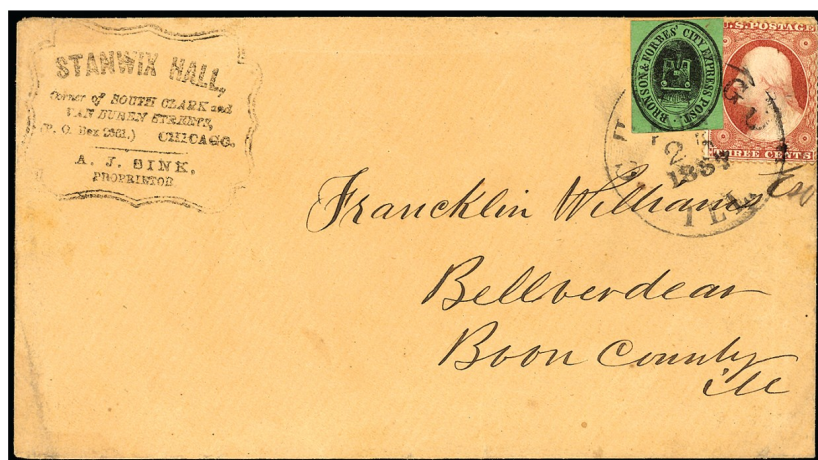 STANWIX HALL,
Corner of SOUTH CLARK and
VAN BUREN STREETS,
(P. O. Box 2981.) CHICAGO.
A. J. SINK,
PROPRIETOR
BRONSON & FORBES' CITY EXPRESS POST.
U.S. POSTAGE
THREE CENTS
185
ILL.
Francklin Williams
Bellverdear
Boon County
ill